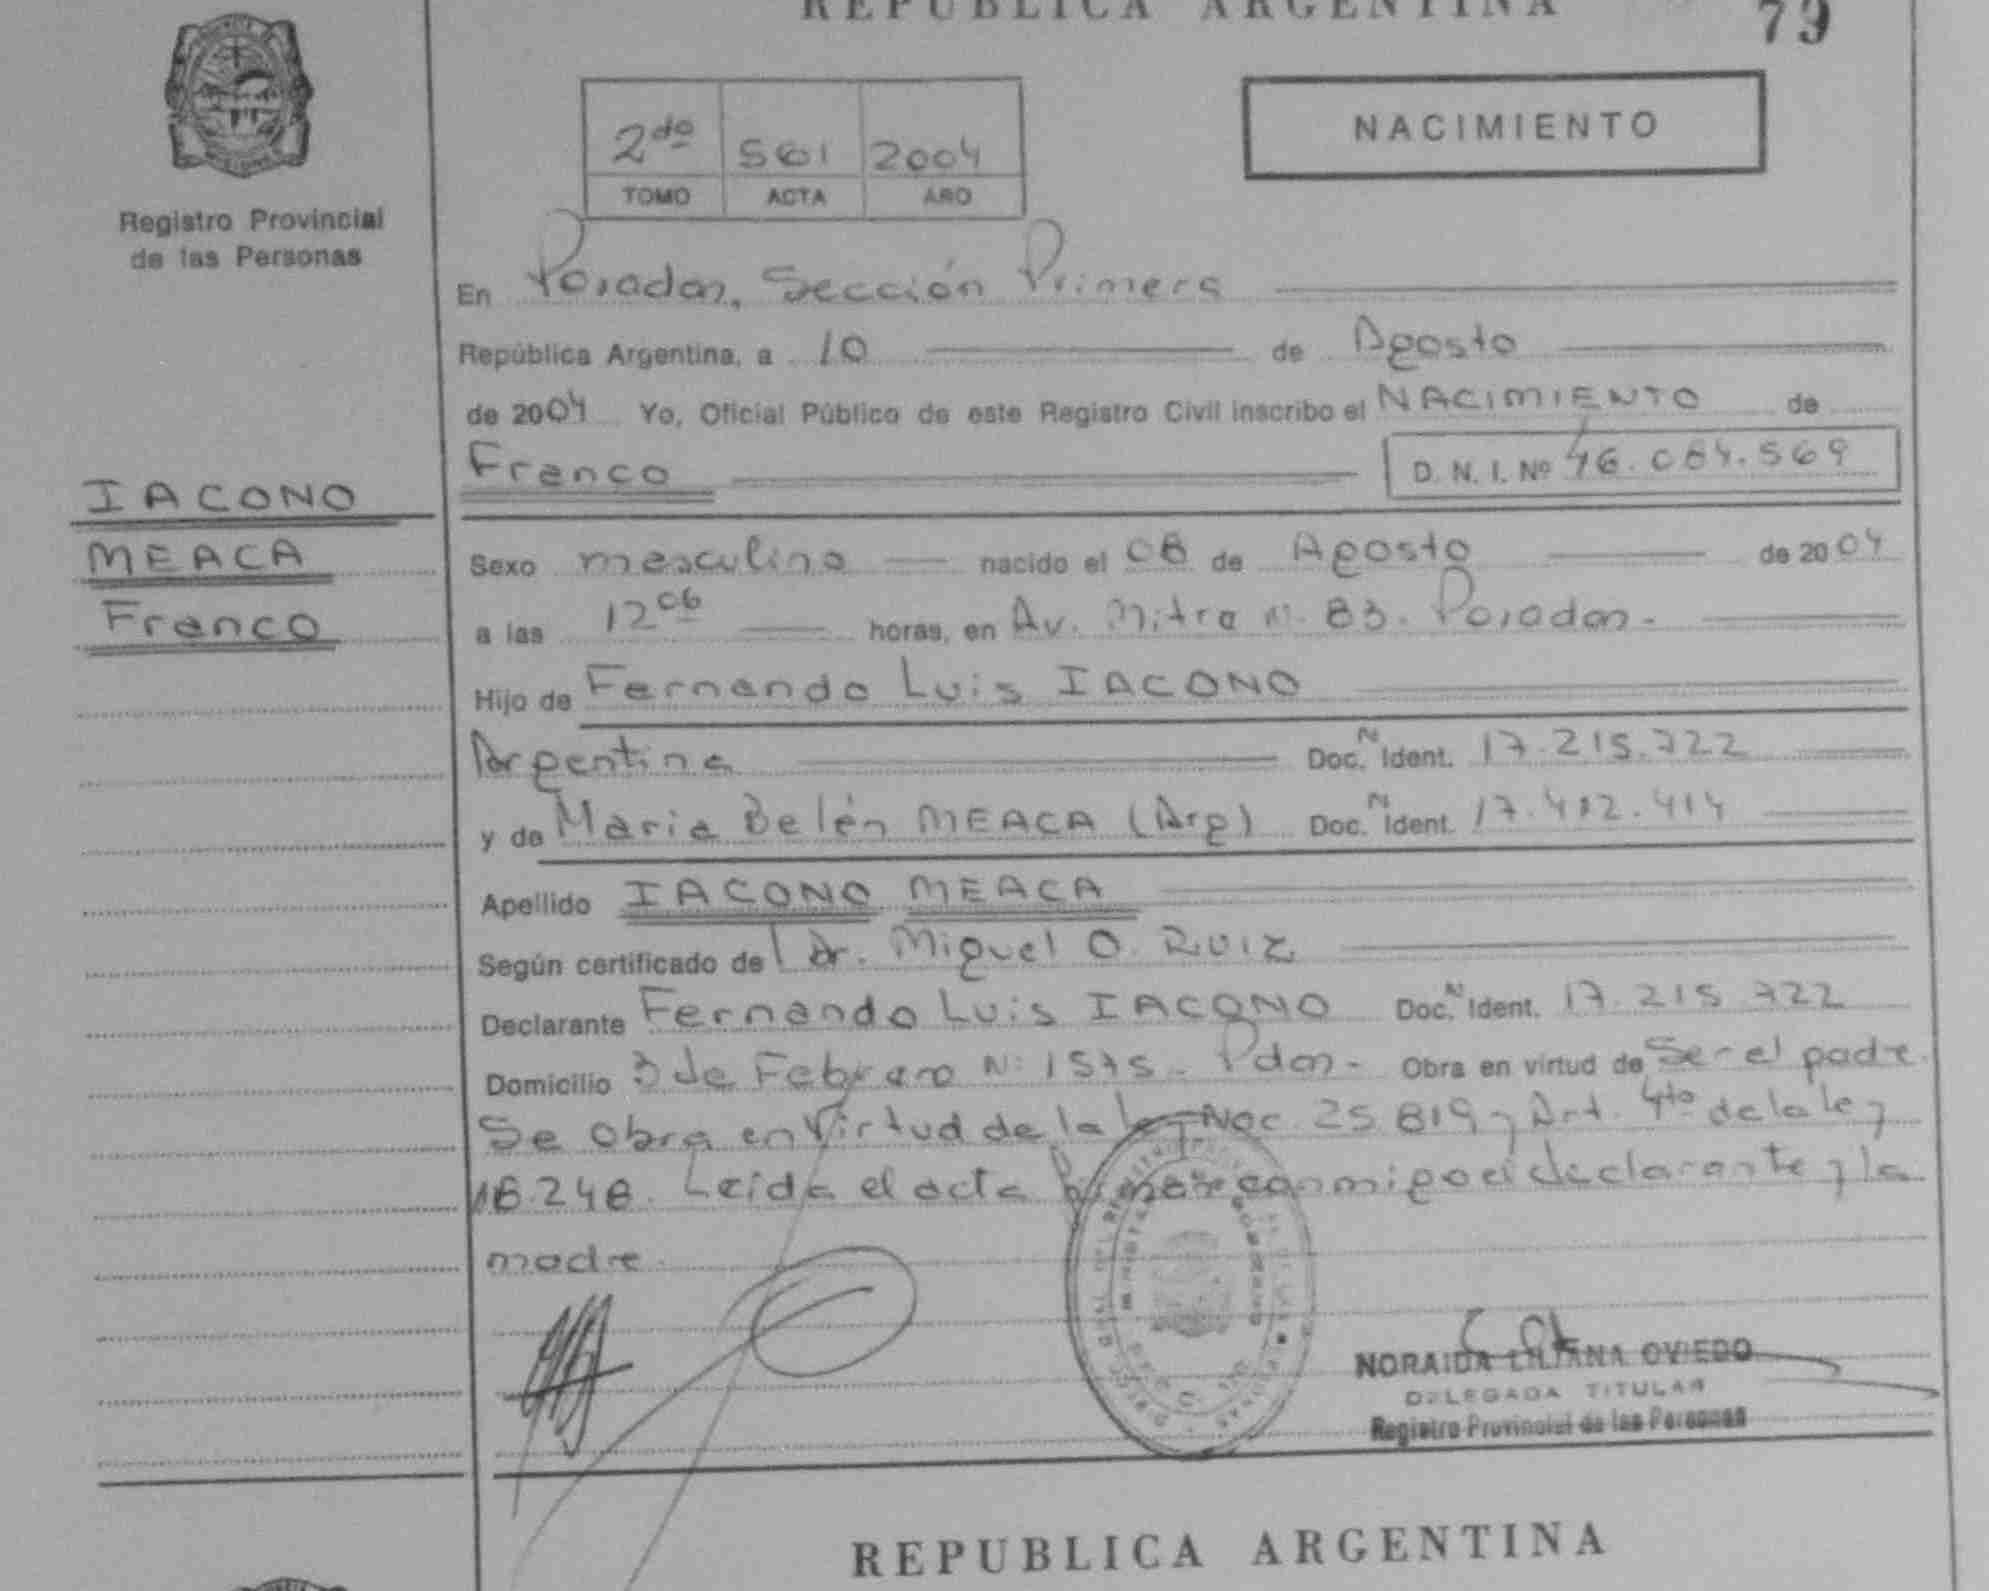 REPUBLICA ARGENTINA
79
2do 561 2004
TOMO ACTA AÑO
NACIMIENTO
Registro Provincial
de las Personas
En Posadas, Sección Primera
República Argentina, a 10 de Agosto
de 2004 Yo, Oficial Público de este Registro Civil inscribo el NACIMIENTO de
Franco D. N. I. Nº 46.084.569
IACONO
MEACA
Franco
Sexo masculino nacido el 08 de Agosto de 2004
a las 12 06 horas, en Av. Mitre N. 83. Posadas.
Hijo de Fernando Luis IACONO
Argentina Doc. N Ident. 17.215.722
y de Maria Belén MEACA (Arg) Doc. N Ident. 17.412.414
Apellido IACONO MEACA
Según certificado del Dr. Miguel O. RUIZ
Declarante Fernando Luis IACONO Doc. N Ident. 17.215.722
Domicilio 3 de Febrero N: 1575 - Pdas - Obra en virtud de Ser el padre.
Se obra en Virtud de la ley Nac. 25.819 y Art. 4to de la ley
18.248. Leida el acta firma conmigo el declarante y la
madre.
NORAIDA LILIANA OVIEDO
DELEGADA TITULAR
Registro Provincial de las Personas
REPUBLICA ARGENTINA